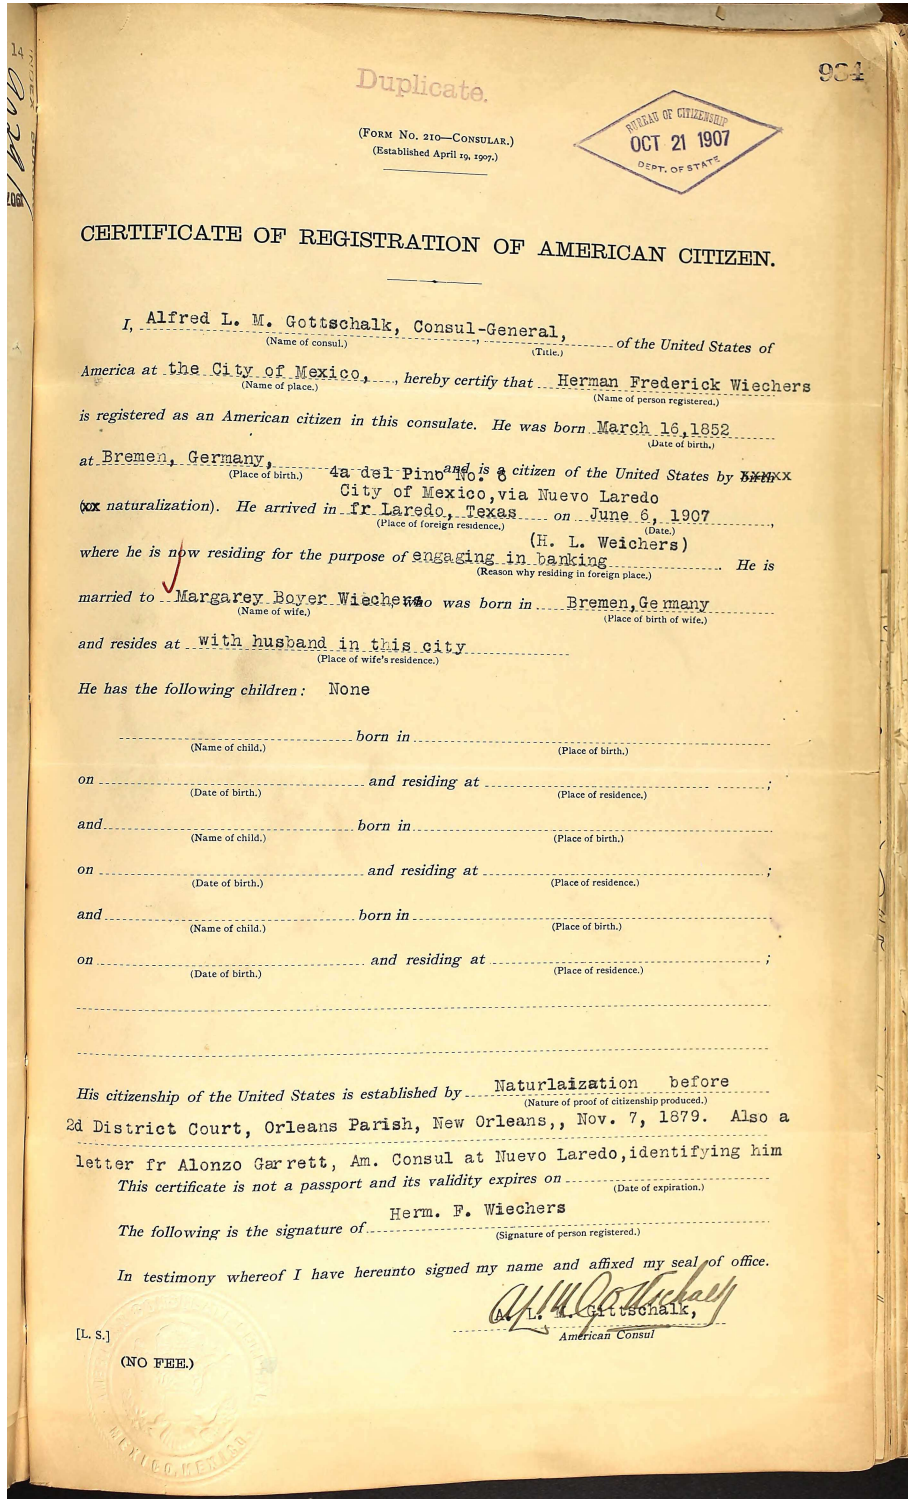 934
Duplicate.
BUREAU OF CITIZENSHIP
OCT 21 1907
DEPT. OF STATE
(FORM NO. 210—CONSULAR.)
(Established April 19, 1907.)
CERTIFICATE OF REGISTRATION OF AMERICAN CITIZEN.
I, Alfred L. M. Gottschalk, Consul-General, of the United States of
(Name of consul.) (Title.)
America at the City of Mexico, , hereby certify that Herman Frederick Wiechers
(Name of place.) (Name of person registered.)
is registered as an American citizen in this consulate. He was born March 16,1852
(Date of birth.)
at Bremen, Germany, 4a del Pino No. 8 and is a citizen of the United States by birth xx
(Place of birth.)
City of Mexico,via Nuevo Laredo
(xx naturalization). He arrived in fr Laredo, Texas on June 6, 1907 ,
(Place of foreign residence.) (Date.)
(H. L. Weichers)
where he is now residing for the purpose of engaging in banking . He is
(Reason why residing in foreign place.)
married to Margarey Boyer Wiechers who was born in Bremen,Germany
(Name of wife.) (Place of birth of wife.)
and resides at with husband in this city
(Place of wife's residence.)
He has the following children: None
born in
(Name of child.) (Place of birth.)
on and residing at ;
(Date of birth.) (Place of residence.)
and born in
(Name of child.) (Place of birth.)
on and residing at ;
(Date of birth.) (Place of residence.)
and born in
(Name of child.) (Place of birth.)
on and residing at ;
(Date of birth.) (Place of residence.)
His citizenship of the United States is established by Naturlaization before
(Nature of proof of citizenship produced.)
2d District Court, Orleans Parish, New Orleans,, Nov. 7, 1879. Also a
letter fr Alonzo Garrett, Am. Consul at Nuevo Laredo,identifying him
This certificate is not a passport and its validity expires on
(Date of expiration.)
Herm. F. Wiechers
The following is the signature of
(Signature of person registered.)
In testimony whereof I have hereunto signed my name and affixed my seal of office.
A L M Gottschalk
A. L. M. Gittschalk,
American Consul
[L. S.]
(NO FEE.)
MEXICO, MEXICO